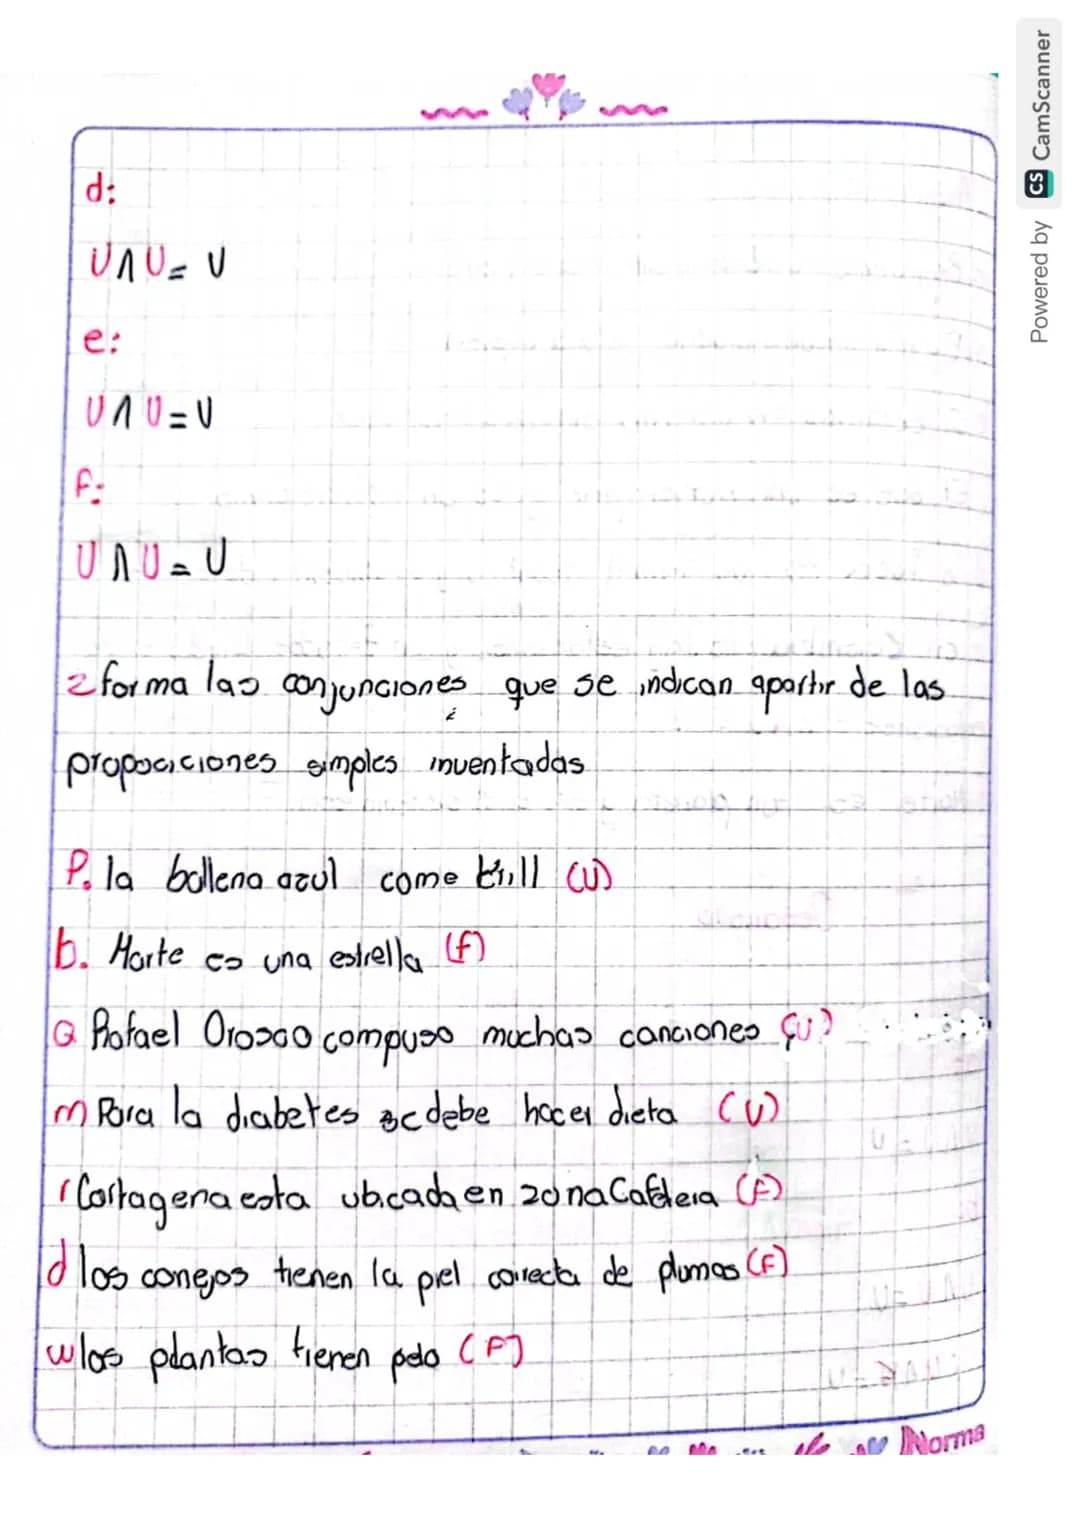 d:
U Λ U = U
e:
U Λ U = U
f:
U Λ U = U
2 forma las conjunciones que se indican apartir de las
proposiciones simples inventadas
P. la ballena azul come krill (U)
b. Marte es una estrella (f)
Q Rafael Orosco compuso muchas canciones (U)
m Para la diabetes se debe hacer dieta (U)
r Cartagena esta ubicada en zona Cafetera (F)
d los conejos tienen la piel correcta de plumas (F)
w las plantas tienen pelo (F)
Norma
Powered by CS CamScanner